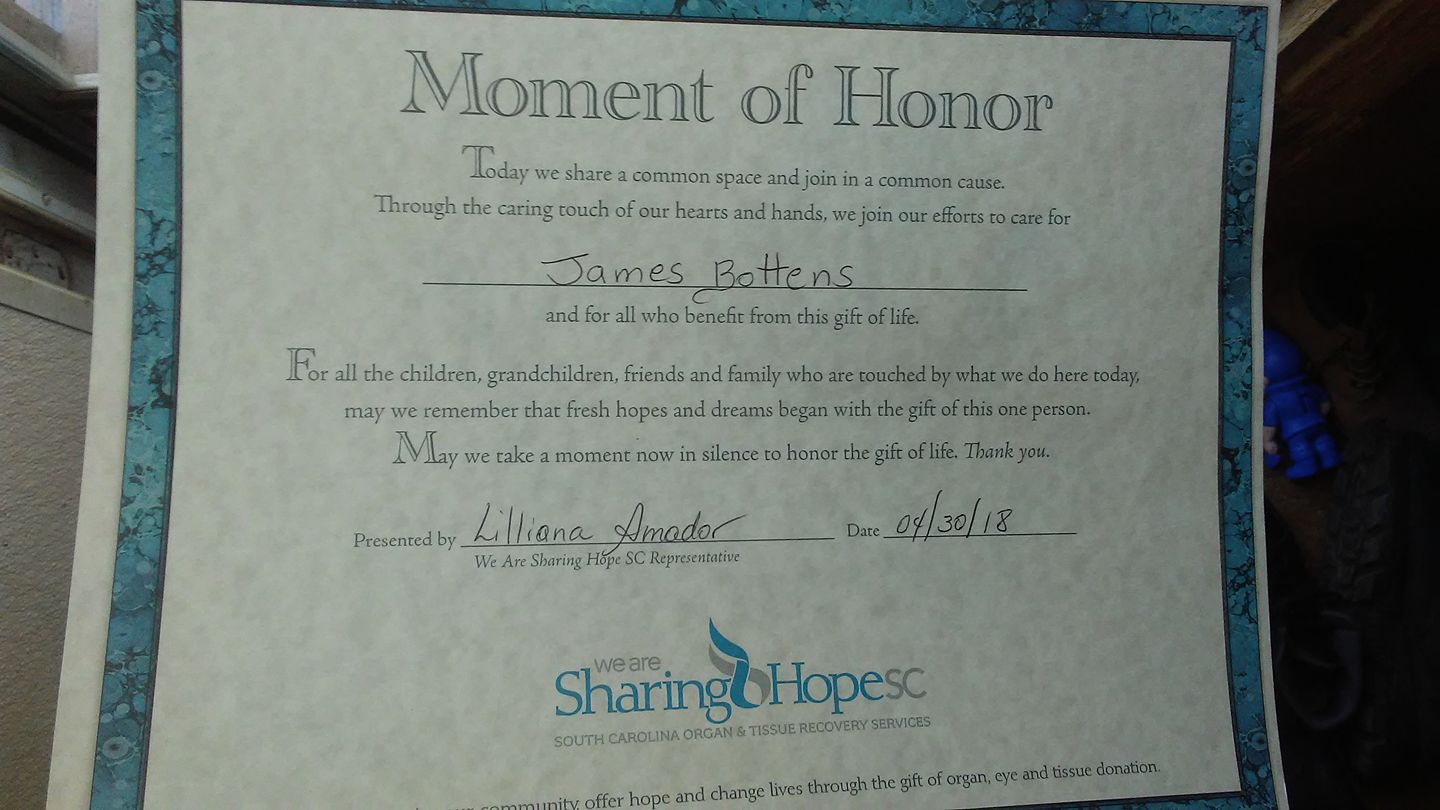 Moment of Honor
Today we share a common space and join in a common cause.
Through the caring touch of our hearts and hands, we join our efforts to care for
James Bottens
and for all who benefit from this gift of life.
For all the children, grandchildren, friends and family who are touched by what we do here today,
may we remember that fresh hopes and dreams began with the gift of this one person.
May we take a moment now in silence to honor the gift of life. Thank you.
Presented by Lilliana Amador Date 04/30/18
We Are Sharing Hope SC Representative
we are
Sharing Hope SC
SOUTH CAROLINA ORGAN & TISSUE RECOVERY SERVICES
community, offer hope and change lives through the gift of organ, eye and tissue donation.